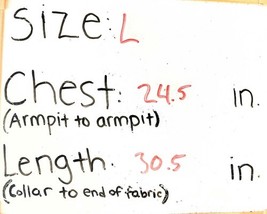 Size: L
Chest: 24.5 in.
(Armpit to armpit)
Length. 30.5 in.
(Collar to end of fabric)